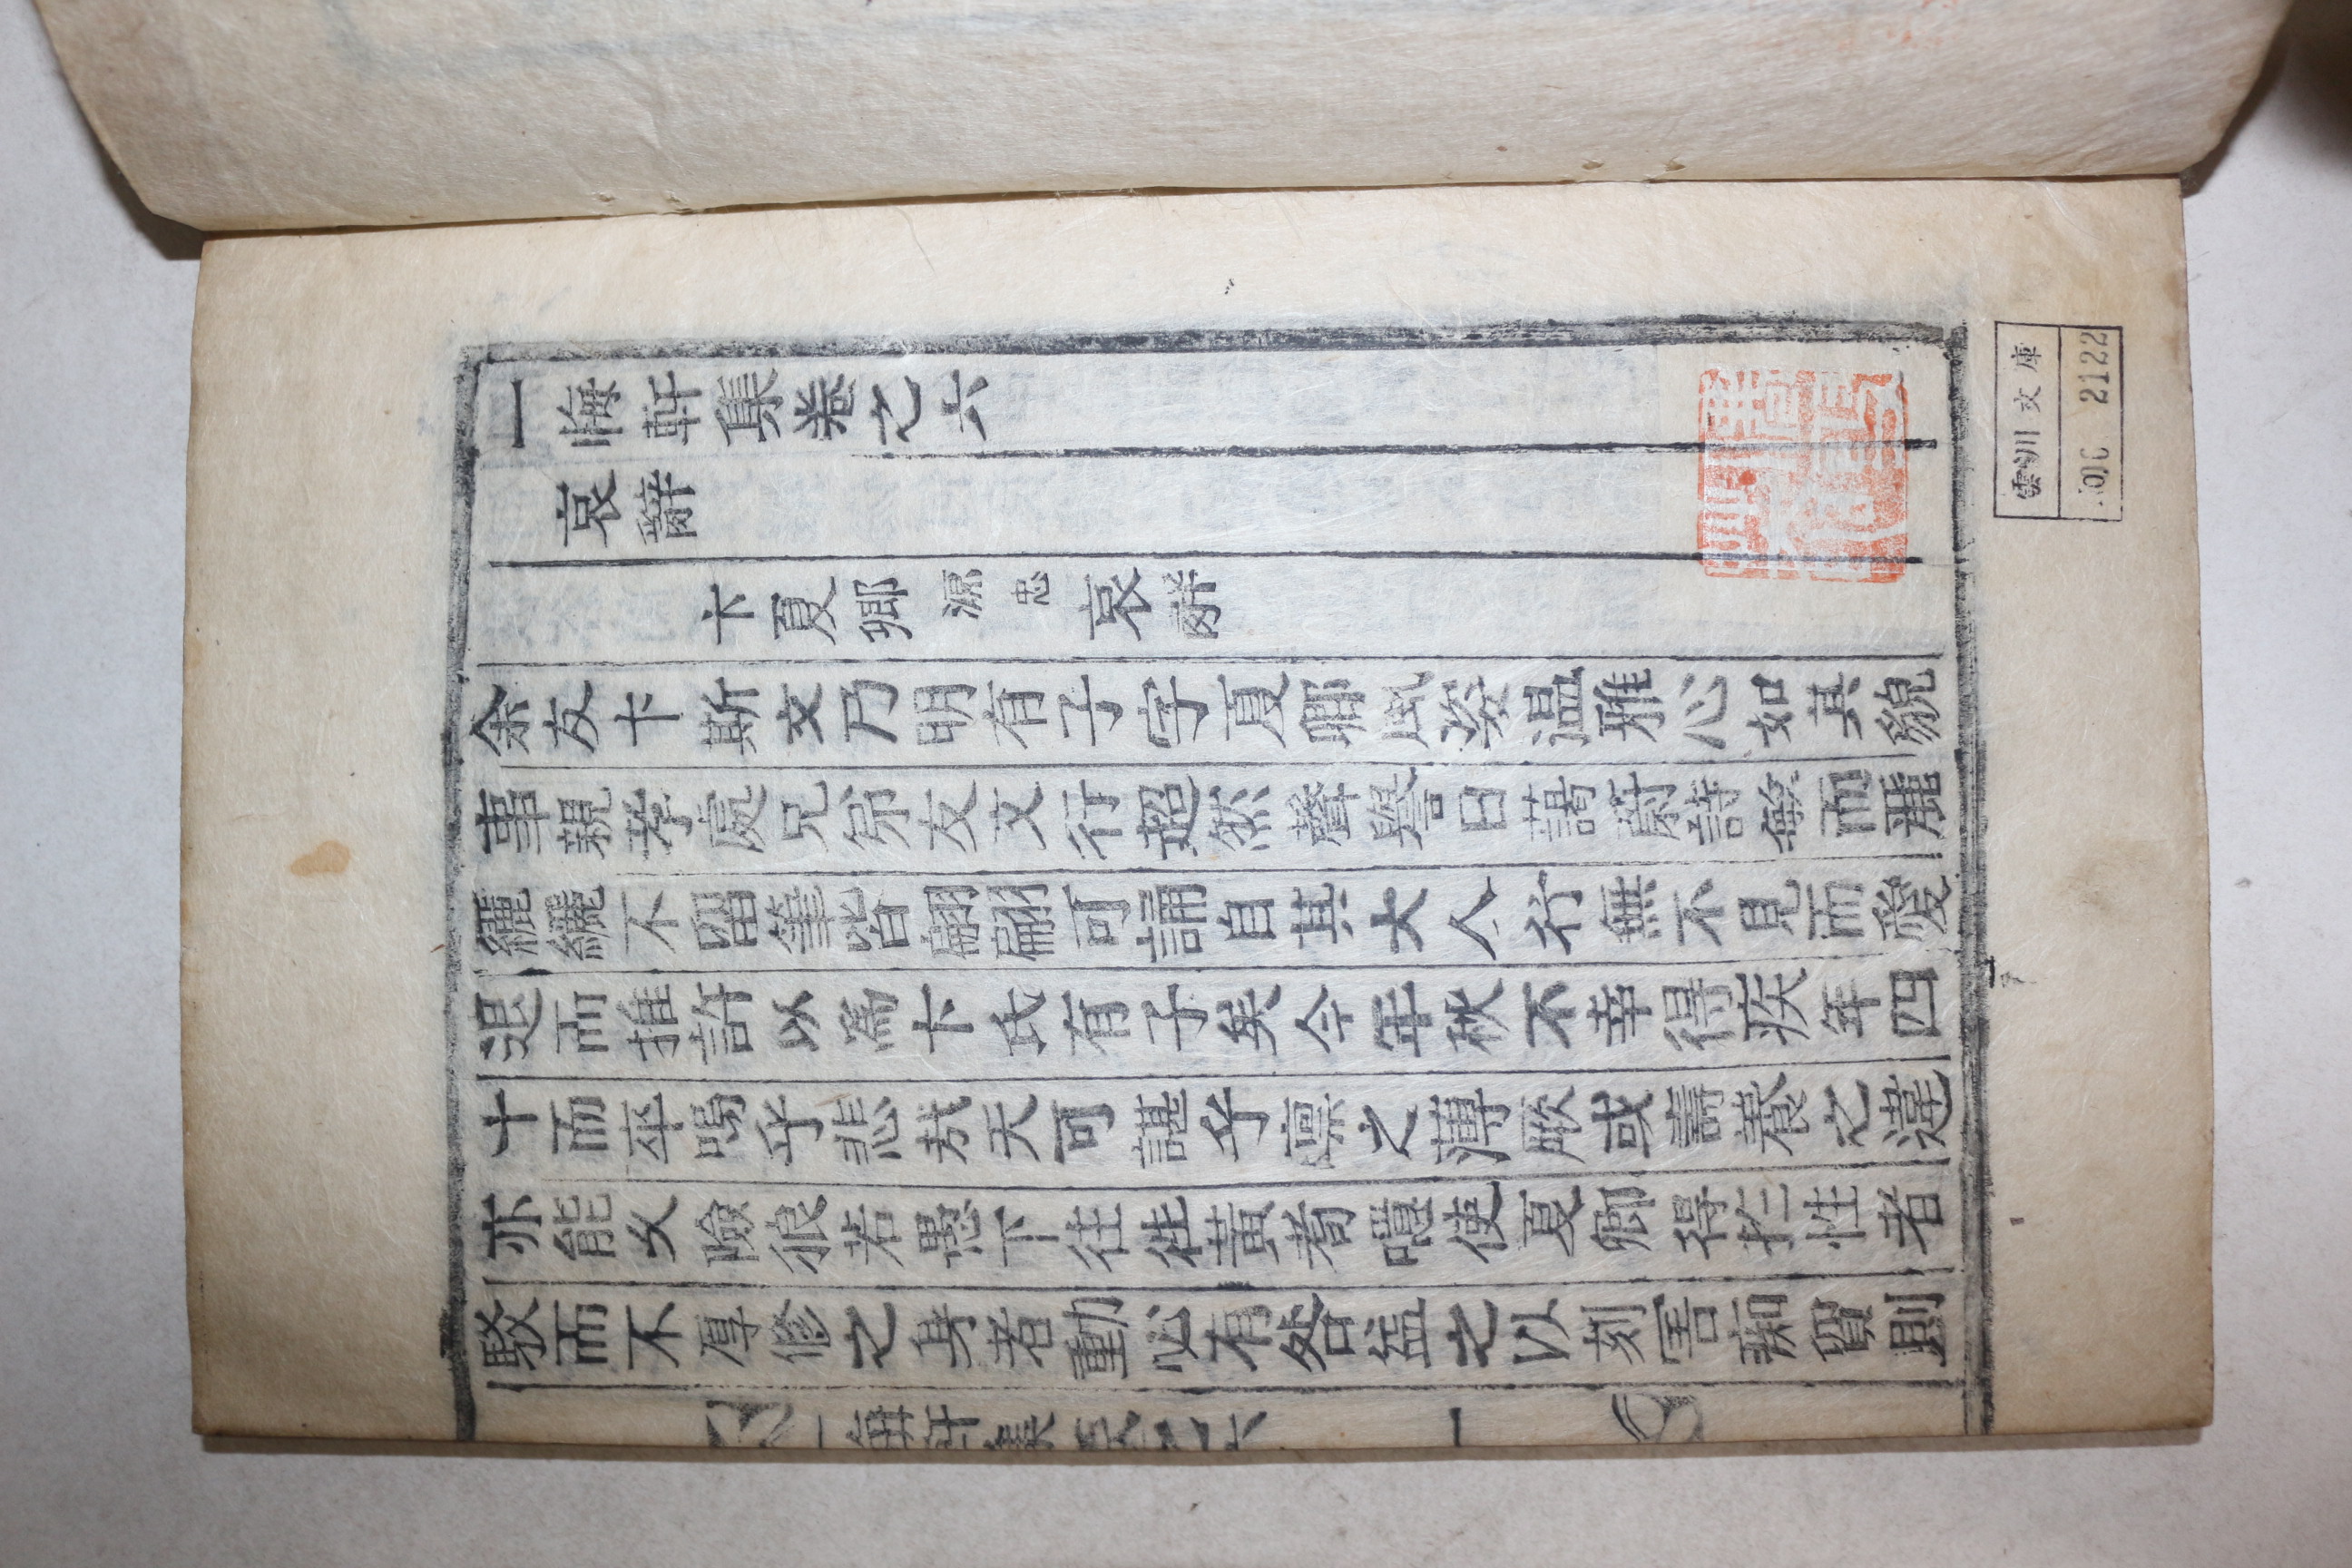 一悔軒集卷之六
哀辭
卞夏卿源忠哀辭
余友卞斯文乃明有子字夏卿風姿温雅心如其貌
事親孝處兄弟友文行超然聲譽日藹蔚詩敏而麗
纚纚不留筆皆翩翩可誦自其大人行無不見而愛
退而推許以爲卞氏有子矣今年秋不幸得疾年四
十而卒嗚乎悲哉天可諶乎禀之薄厥或壽養之違
亦能久險狠若愚下往往黃耇噫使夏卿得於性者
駁而不厚修之身者動必有咎益之以刻害痴
則
一悔軒集卷之六 一
雲川文庫
2122